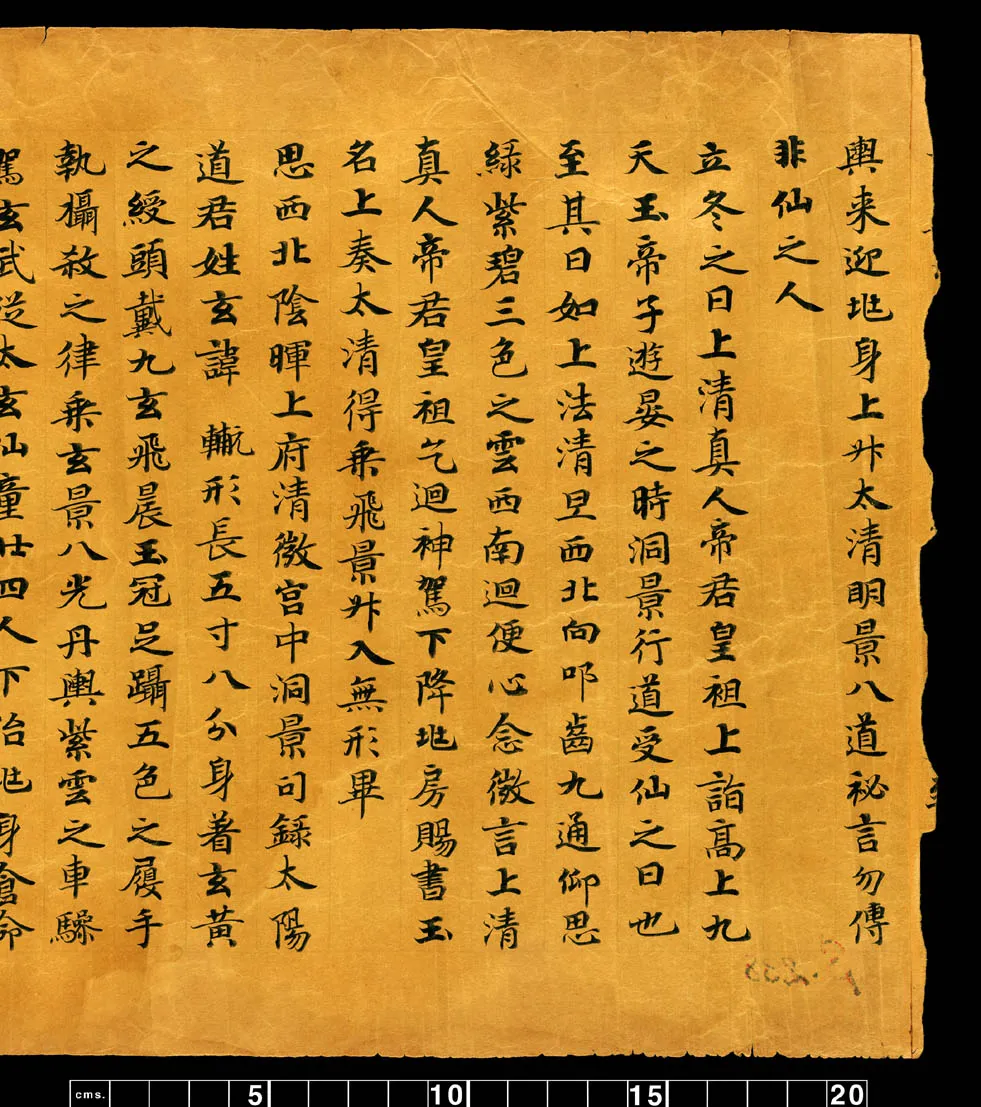 輿来迎兆身上升太清明景八道秘言勿傳
非仙之人
立冬之日上清真人帝君皇祖上詣高上九
天玉帝子遊晏之時洞景行道受仙之日也
至其日如上法清旦西北向叩齒九通仰思
緑紫碧三色之雲西南迴便心念微言上清
真人帝君皇祖乞迴神駕下降兆房賜書玉
名上奏太清得乗飛景升入無形畢
思西北陰暉上府清微宮中洞景司録太陽
道君姓玄諱 形長五寸八分身著玄黄
之綬頭戴九玄飛晨玉冠足躡五色之履手
執攝殺之律乗玄景八光丹輿紫雲之車驂
駕玄武從太玄仙童廿四人下治兆身倉命